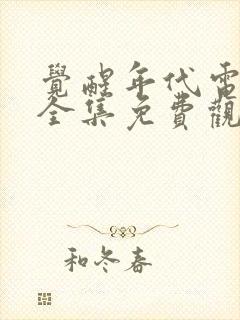 覺醒年代電
全集免費觀
和冬春